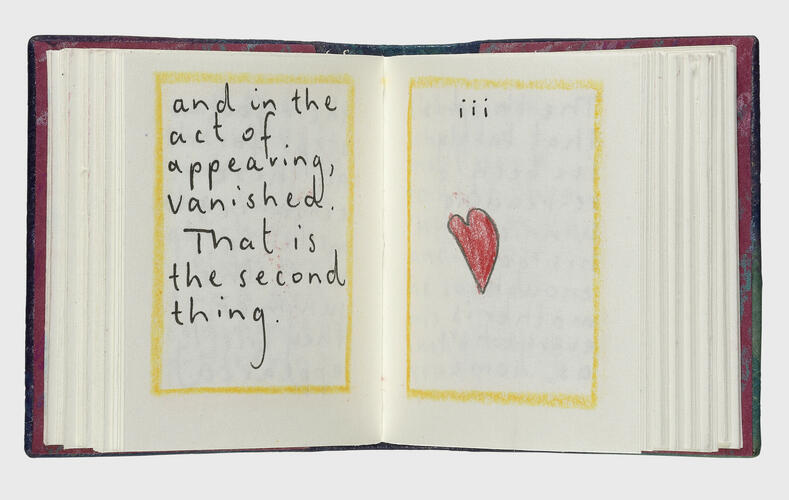 and in the
act of
appearing,
vanished.
That is
the second
thing.
iii